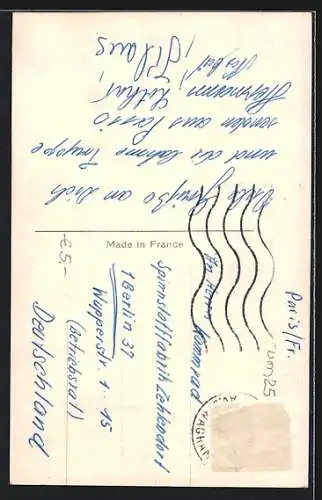 Viele Grüße an Dich
und die lahme Truppe
senden aus Paris
Hermann, Lothar,
Klaus
Made in France
Paris/Fr.
An Herrn
Spinnstoffabrik Zehlendorf
1 Berlin 37
Wupperstr. 1-15
(Betriebsrat)
Deutschland
€ 5,-
von 25